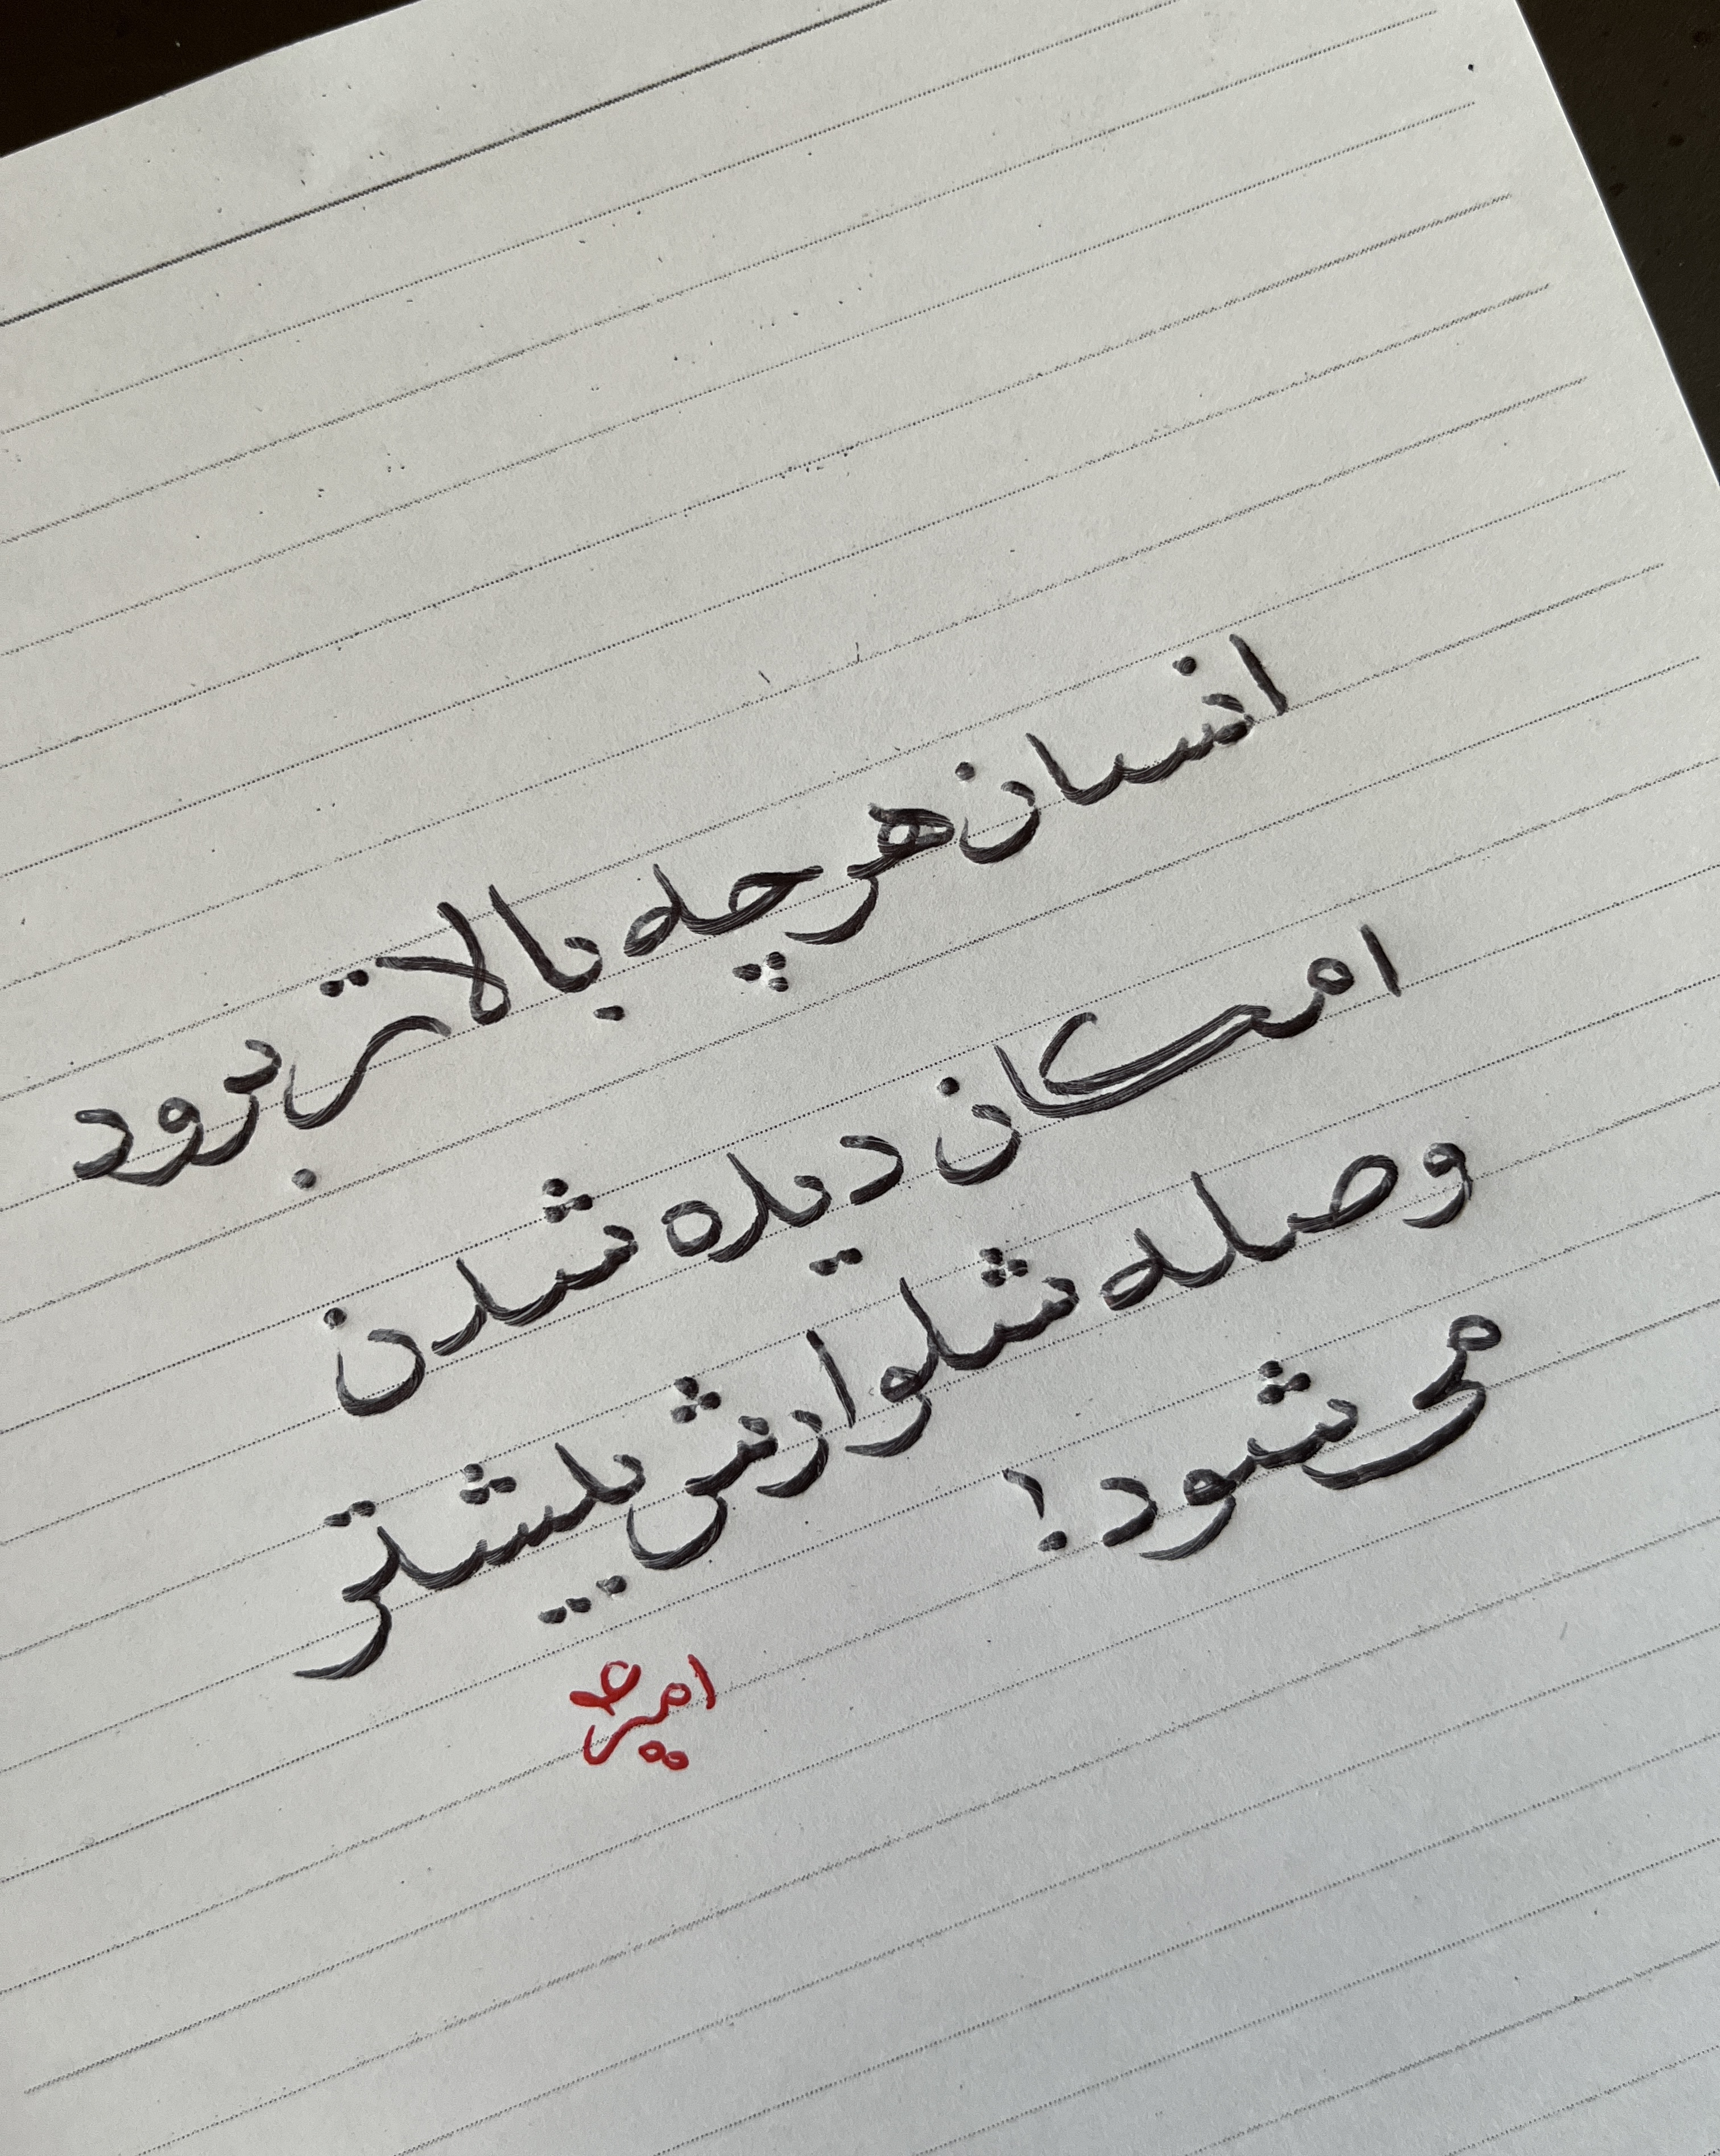 انسان هر چه بالاتر برود
امکان دیده شدن
وصله شلوارش بیشتر
می شود!